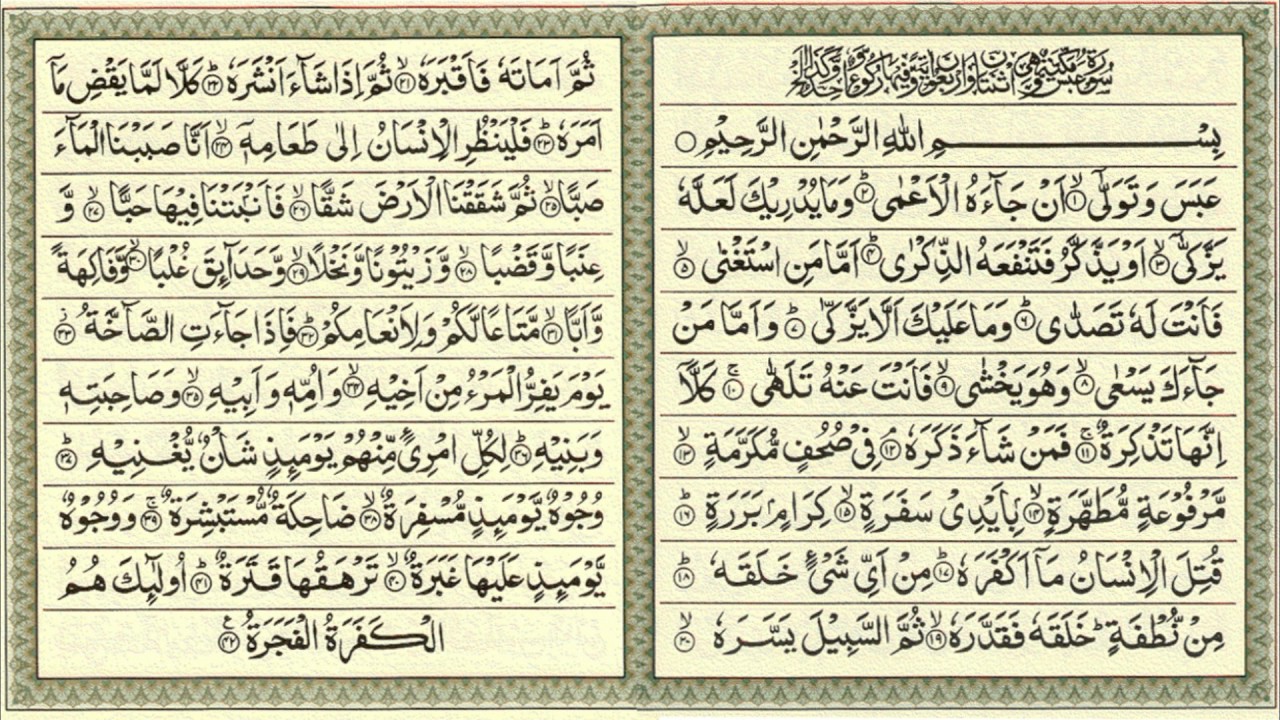 سورة عبس مكية وهي اثنتان واربعون اية وفيها ركوع واحد
بِسْمِ اللهِ الرَّحْمٰنِ الرَّحِيْمِ ○
عَبَسَ وَتَوَلّٰٓى ۙ﴿۱﴾ اَنْ جَآءَهُ الْاَعْمٰى ؕ﴿۲﴾ وَمَا يُدْرِيْكَ لَعَلَّهٗ
يَزَّكّٰٓى ۙ﴿۳﴾ اَوْ يَذَّكَّرُ فَتَنْفَعَهُ الذِّكْرٰى ؕ﴿۴﴾ اَمَّا مَنِ اسْتَغْنٰى ۙ﴿۵﴾
فَاَنْتَ لَهٗ تَصَدّٰى ؕ﴿۶﴾ وَمَا عَلَيْكَ اَلَّا يَزَّكّٰى ؕ﴿۷﴾ وَاَمَّا مَنْ
جَآءَكَ يَسْعٰى ۙ﴿۸﴾ وَهُوَ يَخْشٰى ۙ﴿۹﴾ فَاَنْتَ عَنْهُ تَلَهّٰى ۚ﴿۱۰﴾ كَلَّاۤ
اِنَّهَا تَذْكِرَةٌ ۚ﴿۱۱﴾ فَمَنْ شَآءَ ذَكَرَهٗ ۘ﴿۱۲﴾ فِىْ صُحُفٍ مُّكَرَّمَةٍ ۙ﴿۱۳﴾
مَّرْفُوْعَةٍ مُّطَهَّرَةٍۭ ۙ﴿۱۴﴾ بِاَيْدِىْ سَفَرَةٍ ۙ﴿۱۵﴾ كِرَامٍۭ بَرَرَةٍ ؕ﴿۱۶﴾
قُتِلَ الْاِنْسَانُ مَاۤ اَكْفَرَهٗ ؕ﴿۱۷﴾ مِنْ اَىِّ شَىْءٍ خَلَقَهٗ ؕ﴿۱۸﴾
مِنْ نُّطْفَةٍ ؕ خَلَقَهٗ فَقَدَّرَهٗ ۙ﴿۱۹﴾ ثُمَّ السَّبِيْلَ يَسَّرَهٗ ۙ﴿۲۰﴾
ثُمَّ اَمَاتَهٗ فَاَقْبَرَهٗ ۙ﴿۲۱﴾ ثُمَّ اِذَا شَآءَ اَنْشَرَهٗ ؕ﴿۲۲﴾ كَلَّا لَمَّا يَقْضِ مَاۤ
اَمَرَهٗ ؕ﴿۲۳﴾ فَلْيَنْظُرِ الْاِنْسَانُ اِلٰى طَعَامِهٖۤ ۙ﴿۲۴﴾ اَنَّا صَبَبْنَا الْمَآءَ
صَبًّا ۙ﴿۲۵﴾ ثُمَّ شَقَقْنَا الْاَرْضَ شَقًّا ۙ﴿۲۶﴾ فَاَنْۢبَتْنَا فِيْهَا حَبًّا ۙ﴿۲۷﴾ وَّ
عِنَبًا وَّقَضْبًا ۙ﴿۲۸﴾ وَّزَيْتُوْنًا وَّنَخْلًا ۙ﴿۲۹﴾ وَّحَدَآئِقَ غُلْبًا ۙ﴿۳۰﴾ وَّفَاكِهَةً
وَّاَبًّا ۙ﴿۳۱﴾ مَّتَاعًا لَّكُمْ وَلِاَنْعَامِكُمْ ؕ﴿۳۲﴾ فَاِذَا جَآءَتِ الصَّآخَّةُ ۫﴿۳۳﴾
يَوْمَ يَفِرُّ الْمَرْءُ مِنْ اَخِيْهِ ۙ﴿۳۴﴾ وَاُمِّهٖ وَاَبِيْهِ ۙ﴿۳۵﴾ وَصَاحِبَتِهٖ
وَبَنِيْهِ ؕ﴿۳۶﴾ لِكُلِّ امْرِئٍ مِّنْهُمْ يَوْمَئِذٍ شَاْنٌ يُّغْنِيْهِ ؕ﴿۳۷﴾
وُجُوْهٌ يَّوْمَئِذٍ مُّسْفِرَةٌ ۙ﴿۳۸﴾ ضَاحِكَةٌ مُّسْتَبْشِرَةٌ ۚ﴿۳۹﴾ وَوُجُوْهٌ
يَّوْمَئِذٍ عَلَيْهَا غَبَرَةٌ ۙ﴿۴۰﴾ تَرْهَقُهَا قَتَرَةٌ ؕ﴿۴۱﴾ اُولٰٓئِكَ هُمُ
الْكَفَرَةُ الْفَجَرَةُ ﴿۴۲﴾